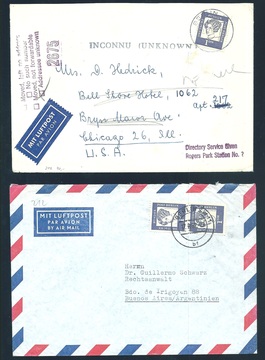 Moved, left no address
No such number
Moved, not forwardable
Addressee unknown
2675
INCONNU (UNKNOWN)
Mrs. D. Hedrick,
Ball Shore Hotel, 1062
apt. 217
Bryn Mawr Ave:
Chicago 26, Ill.
U.S.A.
MIT LUFTPOST
PAR AVION
Directory Service Given
Rogers Park Station No. 7
MIT LUFTPOST
PAR AVION
BY AIR MAIL
Herrn
Dr. Guillermo Schwarz
Rechtsanwalt
Bdo. de Irigoyen 88
Buenos Aires/Argentinien